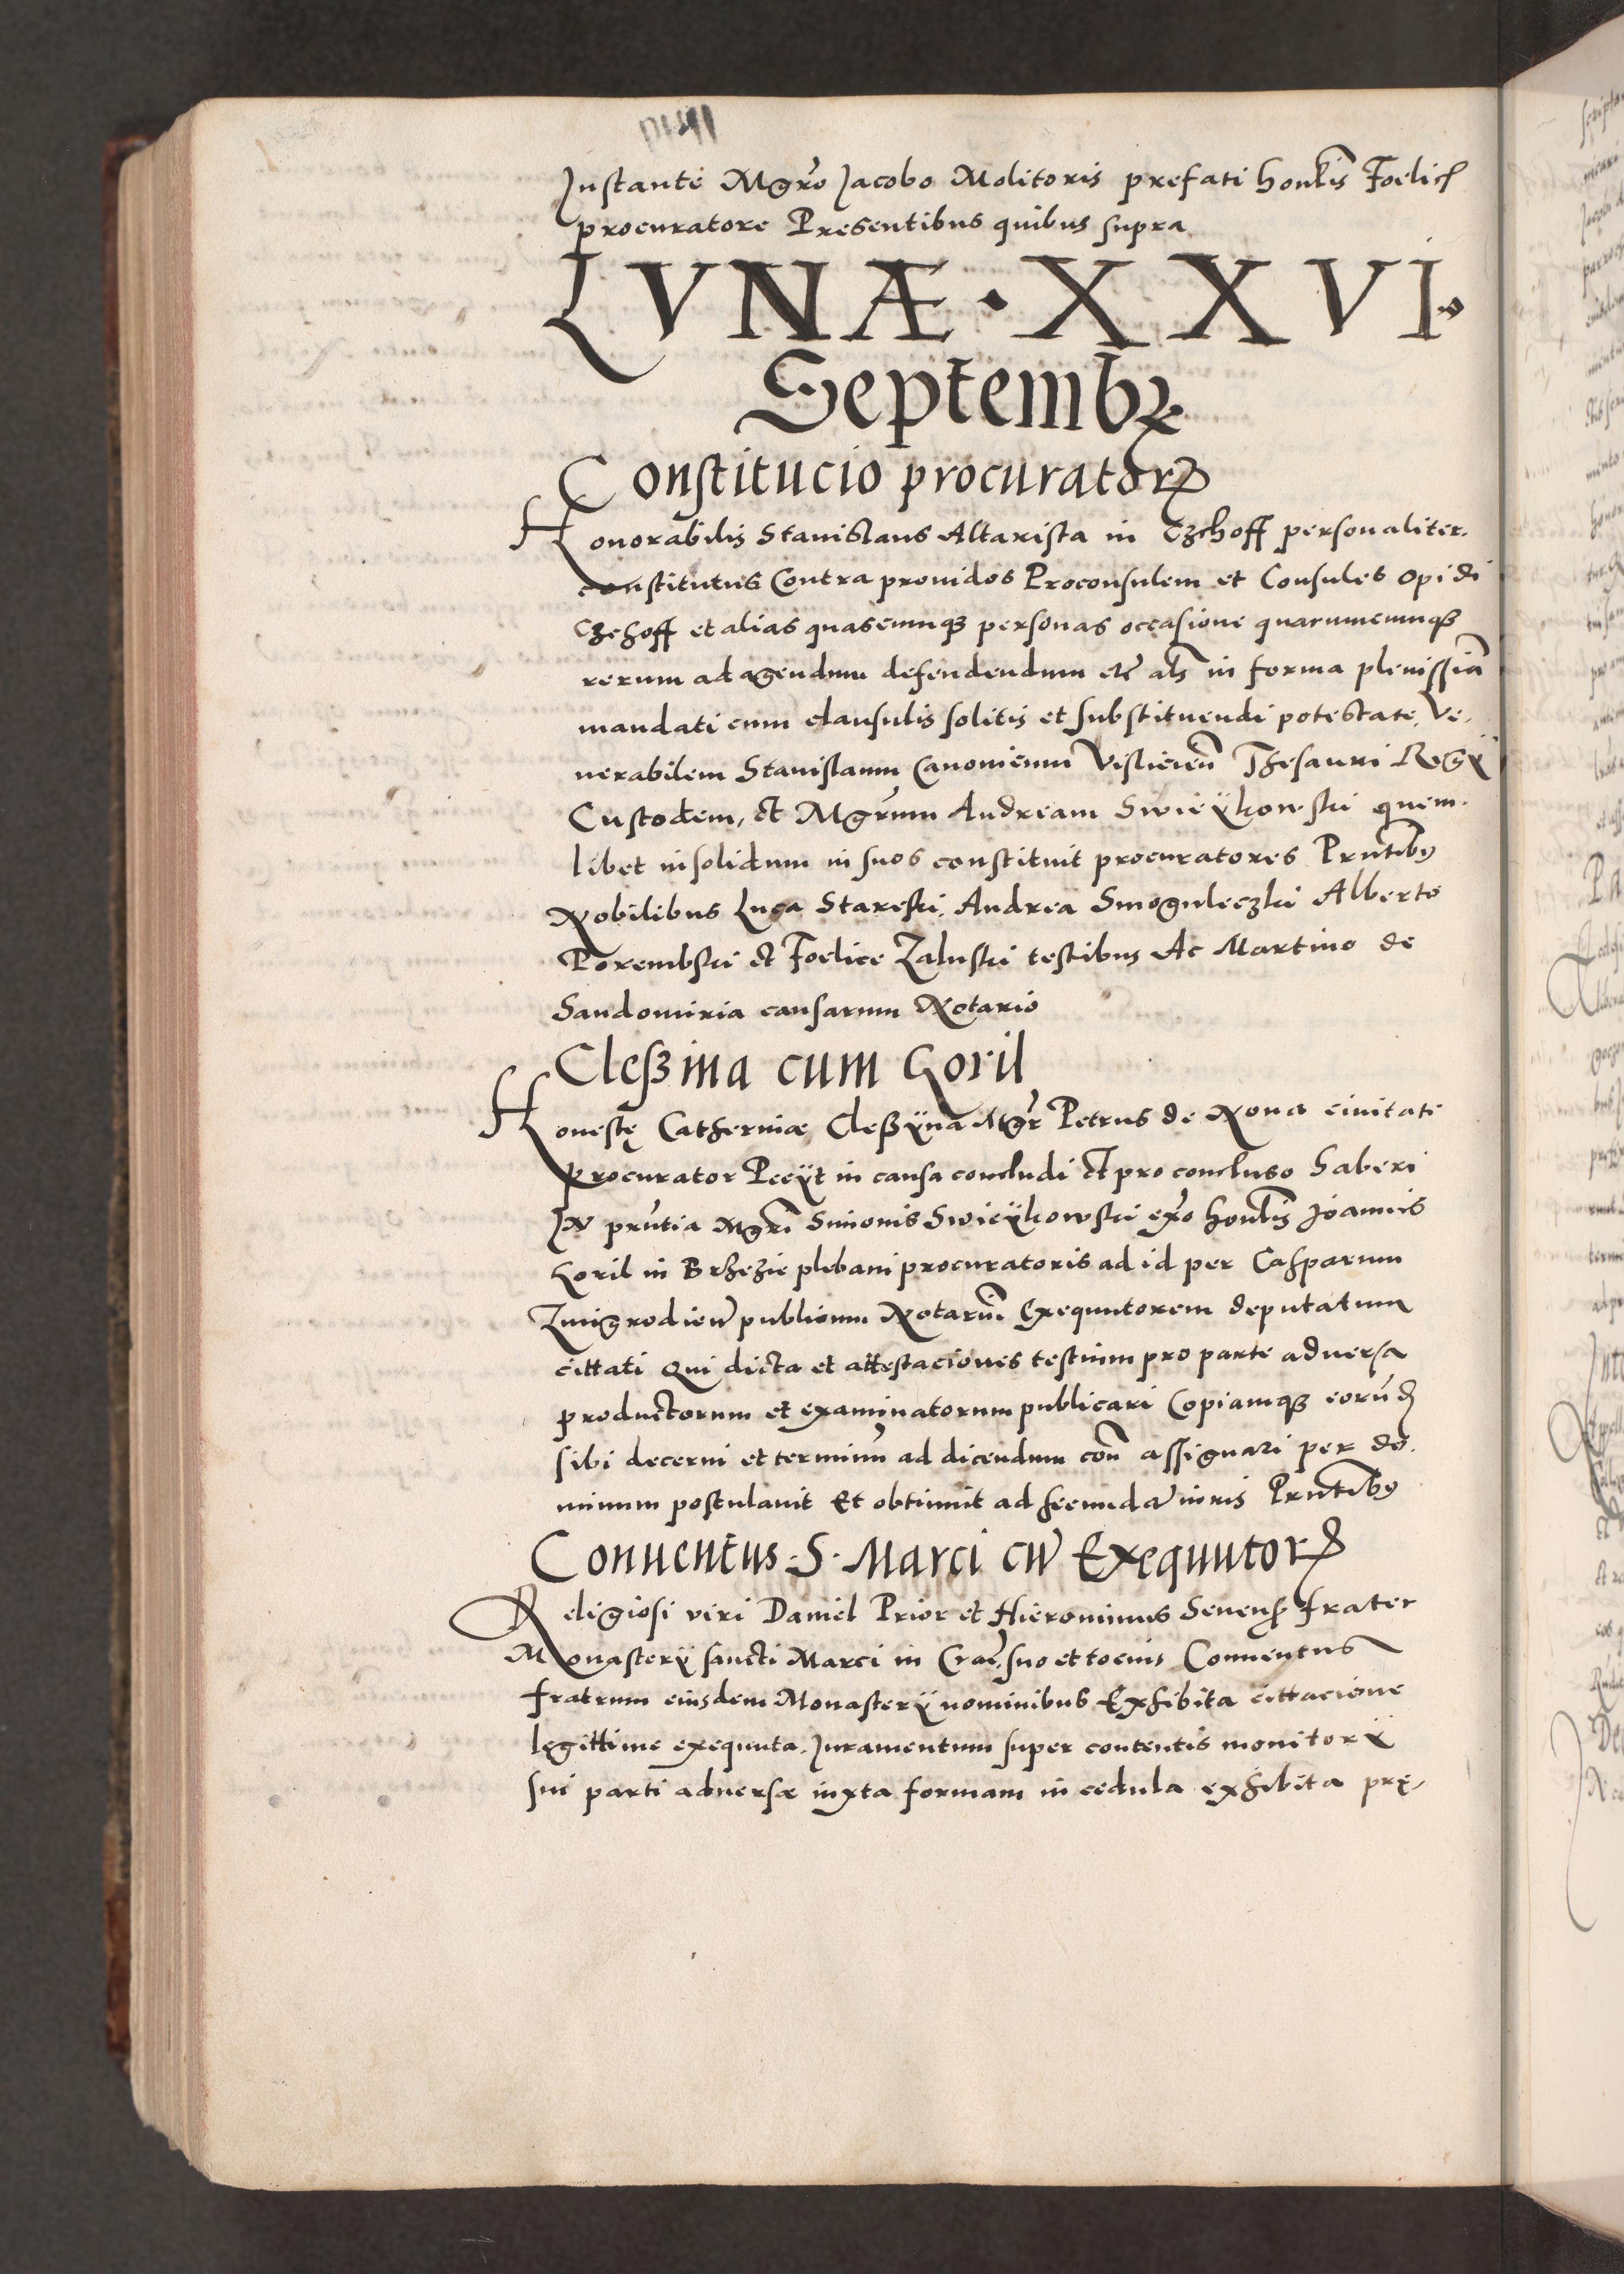 Instante Mgrō Jacobo Molitoris prefati honlis Foelicꝭ
procuratore Presentibus quibus supra
LVNÆ · XXVI ·
Septembꝝ
Constitucio procuratorꝝ
Honorabilis Stanislaus Altarista in Czchoff personaliter
constitutus Contra prouidos Proconsulem et Consules opidi
Czchoff et alias quascumqꝫ personas occasione quarumcumqꝫ
rerum ad agendum defendendum etc̄ als in forma plenissia
mandati cum clausulis solitis et substituendi potestate, Ve,
nerabilem Stanislaum Canonicum Vislicien̄ Thesauri Regÿ
Custodem, et Mgrum Andream Swieÿkowski quem,
libet insolidum in suos constituit procuratores Prntibꝰ
Nobilibus Luca Stareski, Andrea Smoguleczki Alberto
Porembski et Foelice Zaluski testibus Ac Martino de
Sandomiria causarum Notario
Cleßina cum Goril
Honestę Catherinæ Cleßÿna Mgr Petrus de Noua ciuitate
procurator Pecÿt in causa concludi et pro concluso haberi
In prn̄tia Mgri Simonis Swieÿkowski ex̄o honlis Joannis
Goril in Brzezie plebani procuratoris ad id per Casparum
Zmigrodien̄ publicum Notariū Exequutorem deputatum
cittati Qui dicta et attestaciones testium pro parte aduersa
productorum et examinatorum publicari Copiamqꝫ eorūd
sibi decerni et terminū ad dicendum con̄ assignari per do,
minum postulauit Et obtinuit ad scdam iuris Prntibꝰ
Conuentus · S · Marci cū Exequutorꝭ
Religiosi viri Daniel Prior et Hieronimus Seuenß frater
Monasterÿ sancti Marci in Crac̄. suo et tocius Conuentus
fratrum eiusdem Monasterÿ nominibus Exhibita cittacione
legittime exequuta, Juramentum super contentis monitorÿ
sui parti aduersæ iuxta formam in cedula exhibita prę,